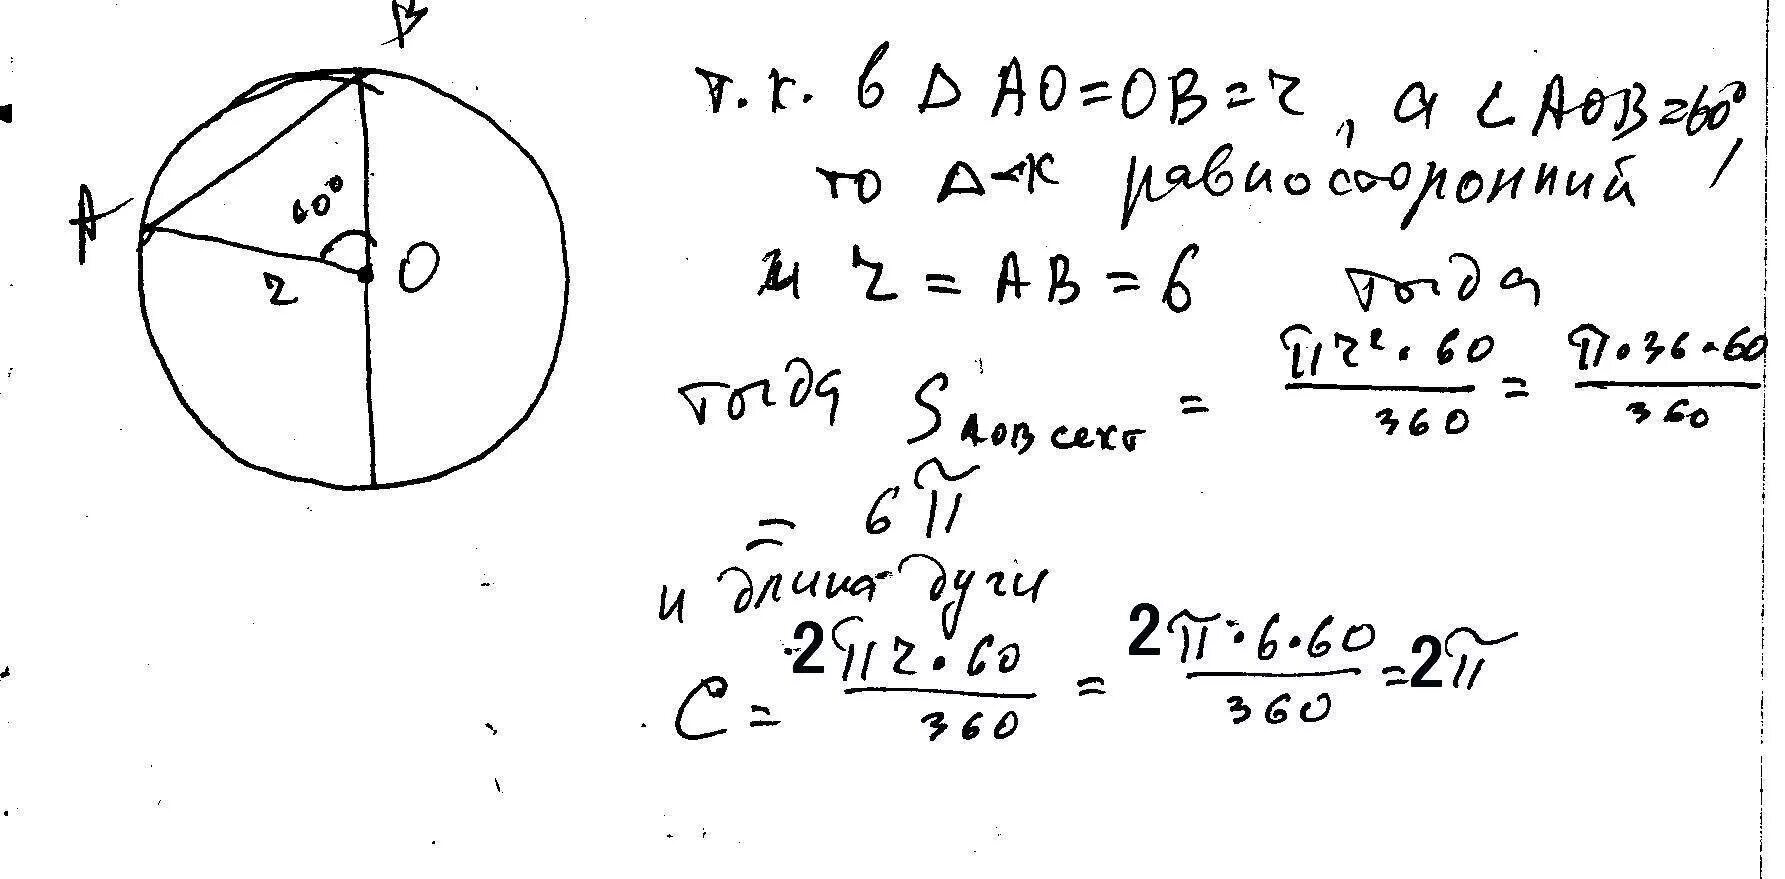 B
A
60°
O
r
т.к. в Δ AO=OB=r, а ∠AOB=60°,
то Δ-к равносторонний
и r = AB = 6 тогда
тогда S AOB сект = πr²·60/360 = π·36·60/360
= 6π
и длина дуги
C = 2πr·60/360 = 2π·6·60/360 = 2π